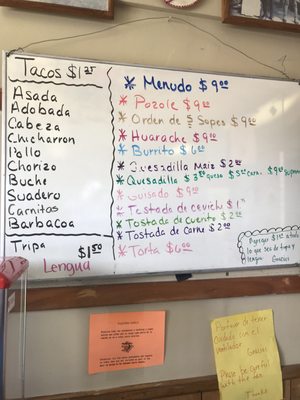 Tacos $1.25
Asada
Adobada
Cabeza
Chicharron
Pollo
Chorizo
Buche
Suadero
Carnitos
Barbacoa
Tripa $1.50
Lengua
* Menudo $9.00
* Pozole $9.00
* Orden de 5 Sopes $9.00
* Huarache $9.00
* Burrito $6.00
* Quesadilla Maiz $2.00
* Quesadilla $3.00 Queso $5.00 Carn. $9.00 Suprema
* Guisado $9.00
* Tostada de cevich
* Tostada de cuerito $2.00
* Tostada de Carne $2.00
* Torta $6.00
Agregue $1.00 a todo
lo que sea de tripa y
lengua Gracias
Porfavor de tener
cuidado con el
ventilador
Gracias
Please be careful
with the fan
Thanks